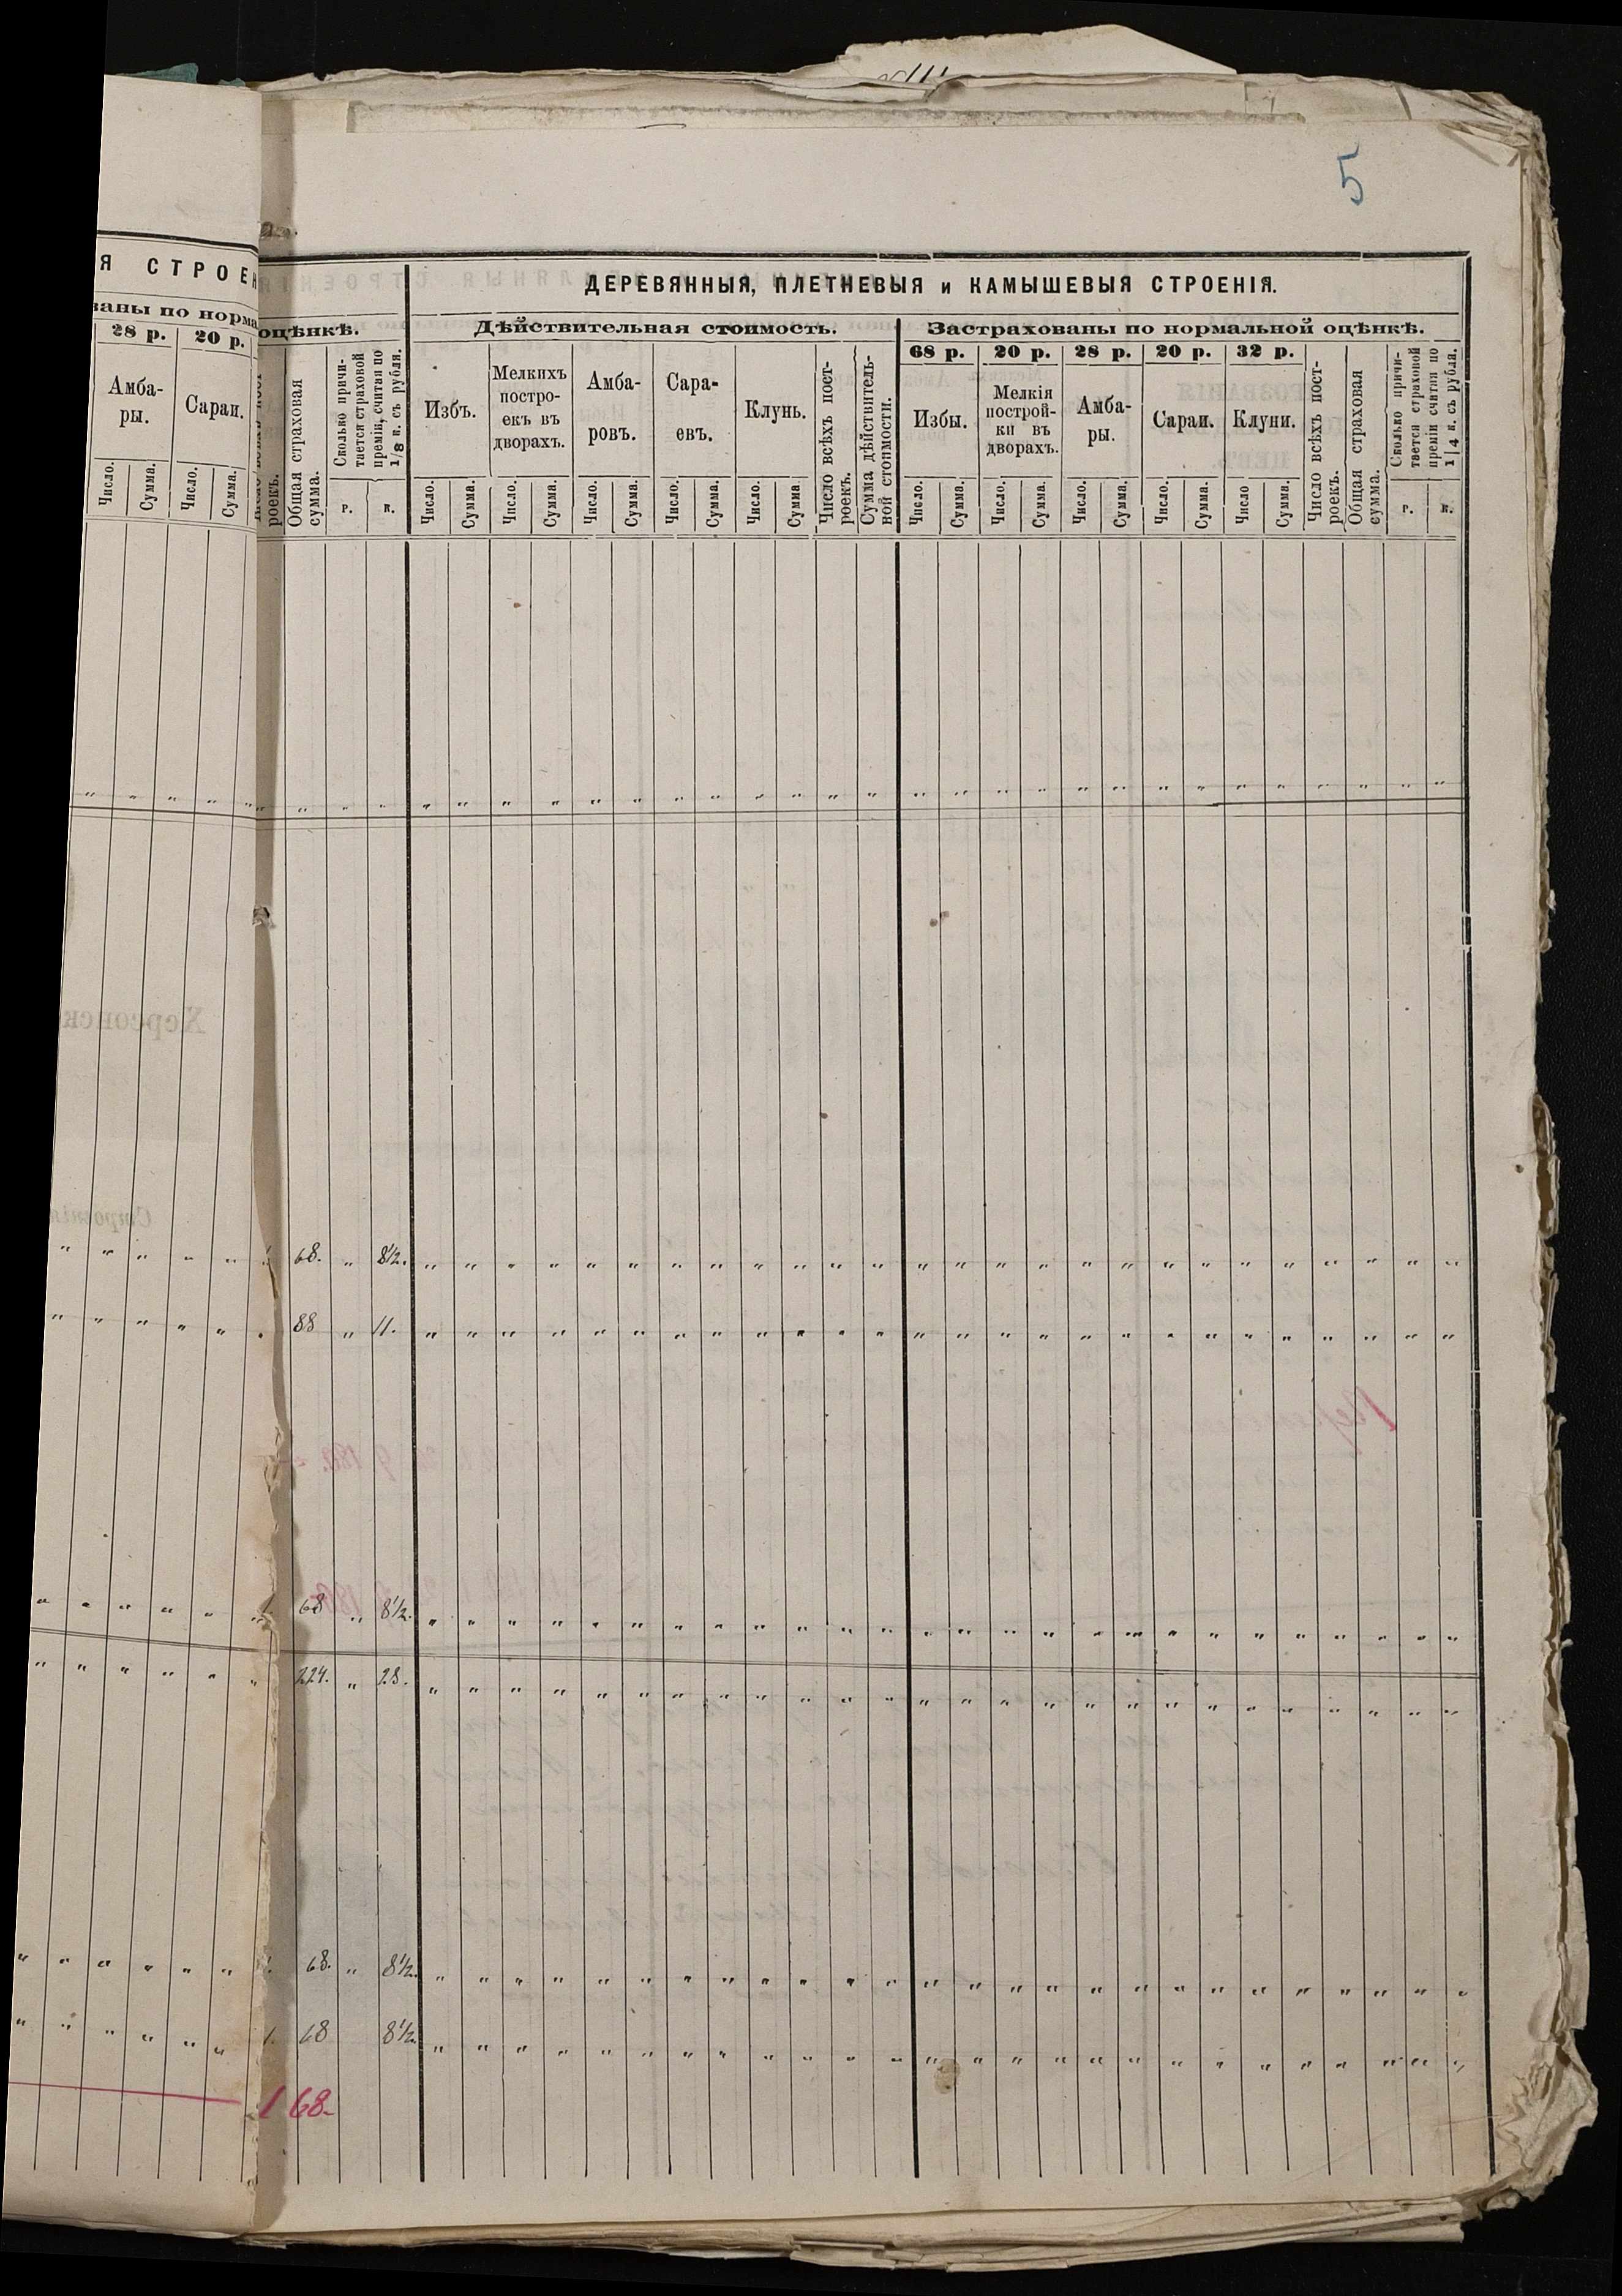 5
Я СТРОЕН
ДЕРЕВЯННЫЯ, ПЛЕТНЕВЫЯ и КАМЫШЕВЫЯ СТРОЕНІЯ.
ваны по норма
оцѣнкѣ.
Дѣйствительная стоимость.
Застрахованы по нормальной оцѣнкѣ.
28 р. 20 р.
68 р. 20 р. 28 р. 20 р. 32 р.
Амба-
ры.
Сараи.
роекъ.
Общая страховая
сумма.
Сколько причи-
тается страховой
преміи, считая по
1/8 к. съ рубля.
Избъ.
Мелкихъ
постро-
екъ въ
дворахъ.
Амба-
ровъ.
Сара-
евъ.
Клунь.
Число всѣхъ пост-
роекъ.
Сумма дѣйствитель-
ной стоимости.
Избы.
Мелкія
построй-
ки въ
дворахъ.
Амба-
ры.
Сараи.
Клуни.
Число всѣхъ пост-
роекъ.
Общая страховая
сумма.
Сколько причи-
тается страховой
преміи считая по
1|4 к. съ рубля.
Число. Сумма. Число. Сумма. р. к. Число. Сумма. Число. Сумма. Число. Сумма. Число. Сумма. Число. Сумма Число. Сумма. Число. Сумма. Число. Сумма. Число. Сумма. Число Сумма. р. к.
" " " " " " " " " " " " " " " " " " " " " " " " " " " " " " " " " "
" " " " " 68. " 8½. " " " " " " " " " " " " " " " " " " " " " " " " " "
" " " " " 88 " 11. " " " " " " " " " " " " " " " " " " " " " " " " " "
" " " " " 68 " 8½. " " " " " " " " " " " " " " " " " " " " " " " " " "
" " " " " " 224. " 28. " " " " " " " " " " " " " " " " " " " " " " " " " "
" " " " " " 68. " 8½. " " " " " " " " " " " " " " " " " " " " " " " " " "
" " " " " " 1. 68 8½. " " " " " " " " " " " " " " " " " " " " " " " " " "
1 68-